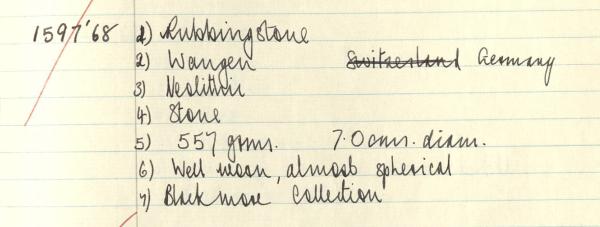 1597'68 1) Rubbingstone
2) Wangen Switzerland Germany
3) Neolithic
4) Stone
5) 557 grms. 7.0cms. diam.
6) Well worn, almost spherical
7) Blackmore Collection